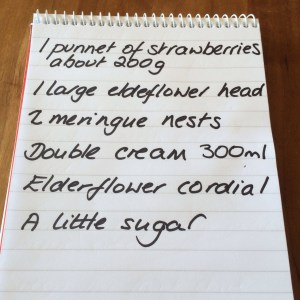 1 punnet of strawberries
about 200g
1 large eldeflower head
2 meringue nests
Double cream 300ml
Elderflower cordial
A little sugar